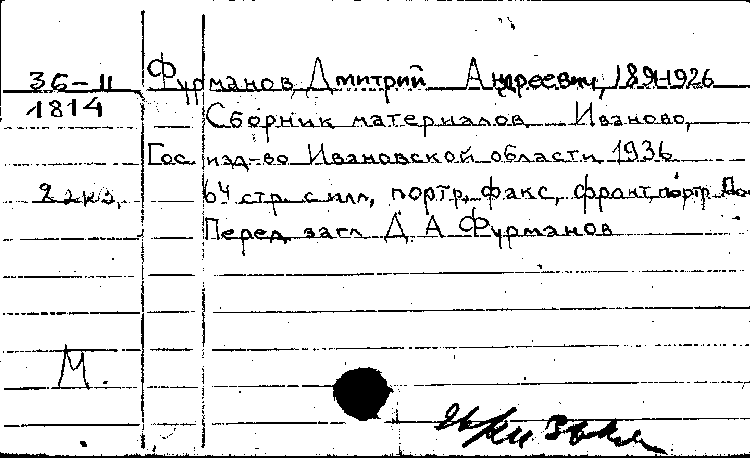 36-11
1814
Фурманов, Дмитрий Андреевич, 1891-1926
Сборник материалов Иваново,
Гос. изд-во Ивановской области 1936
2 экз.
64 стр. с илл, портр, факс, фронт, портр
Перед загл Д А Фурманов
М.